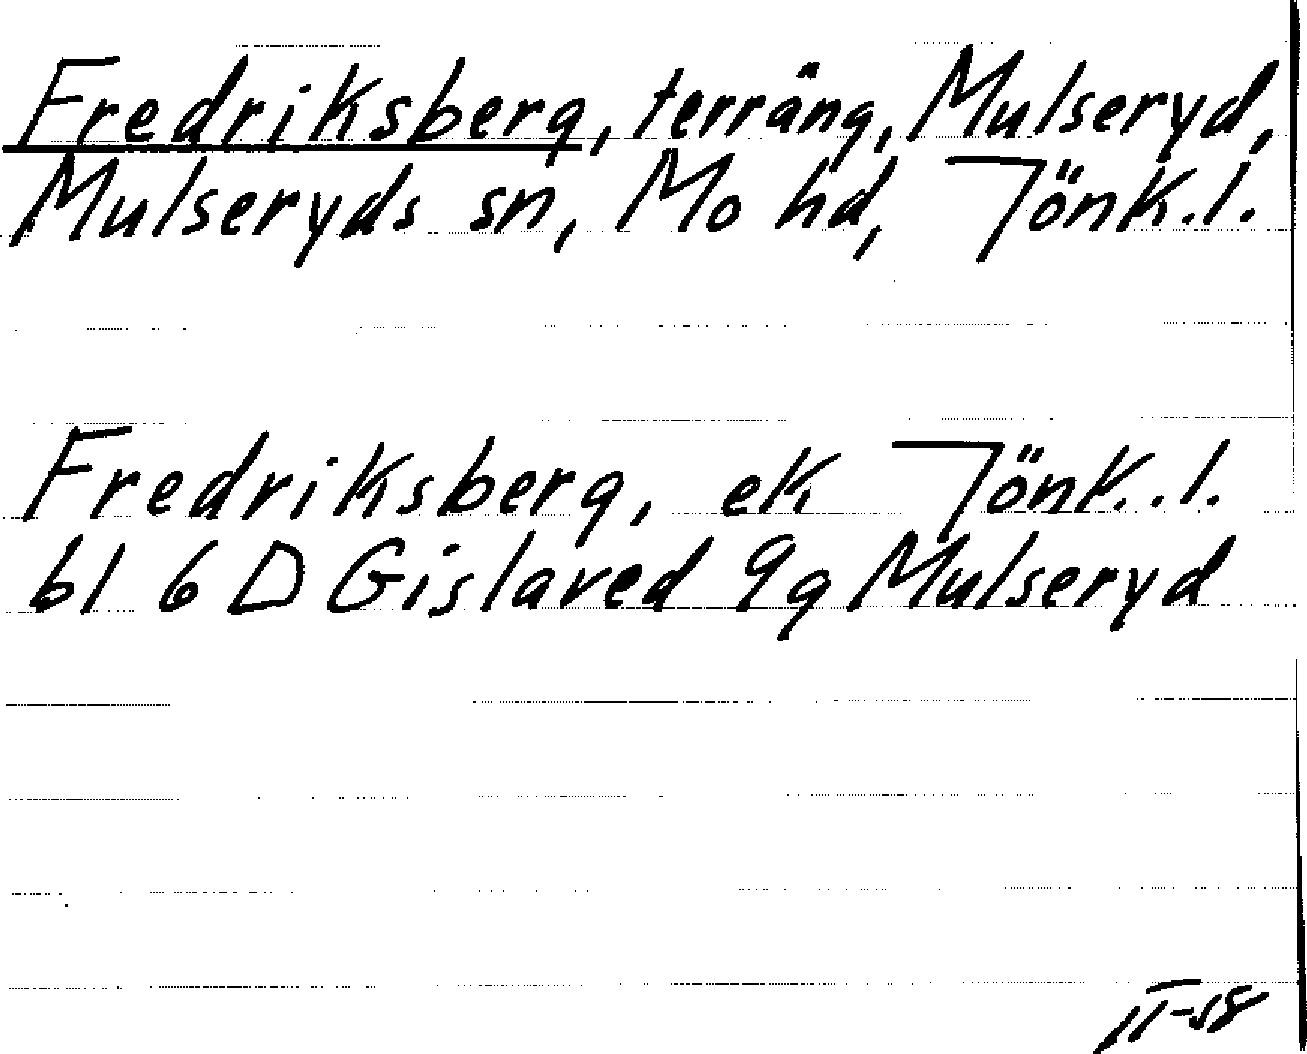 Fredriksberg, terräng, Mulseryd,
Mulseryds sn, Mo hd, Jönk.l.
Fredriksberg, ek Jönk.l.
bl 6 D Gislaved 9g Mulseryd